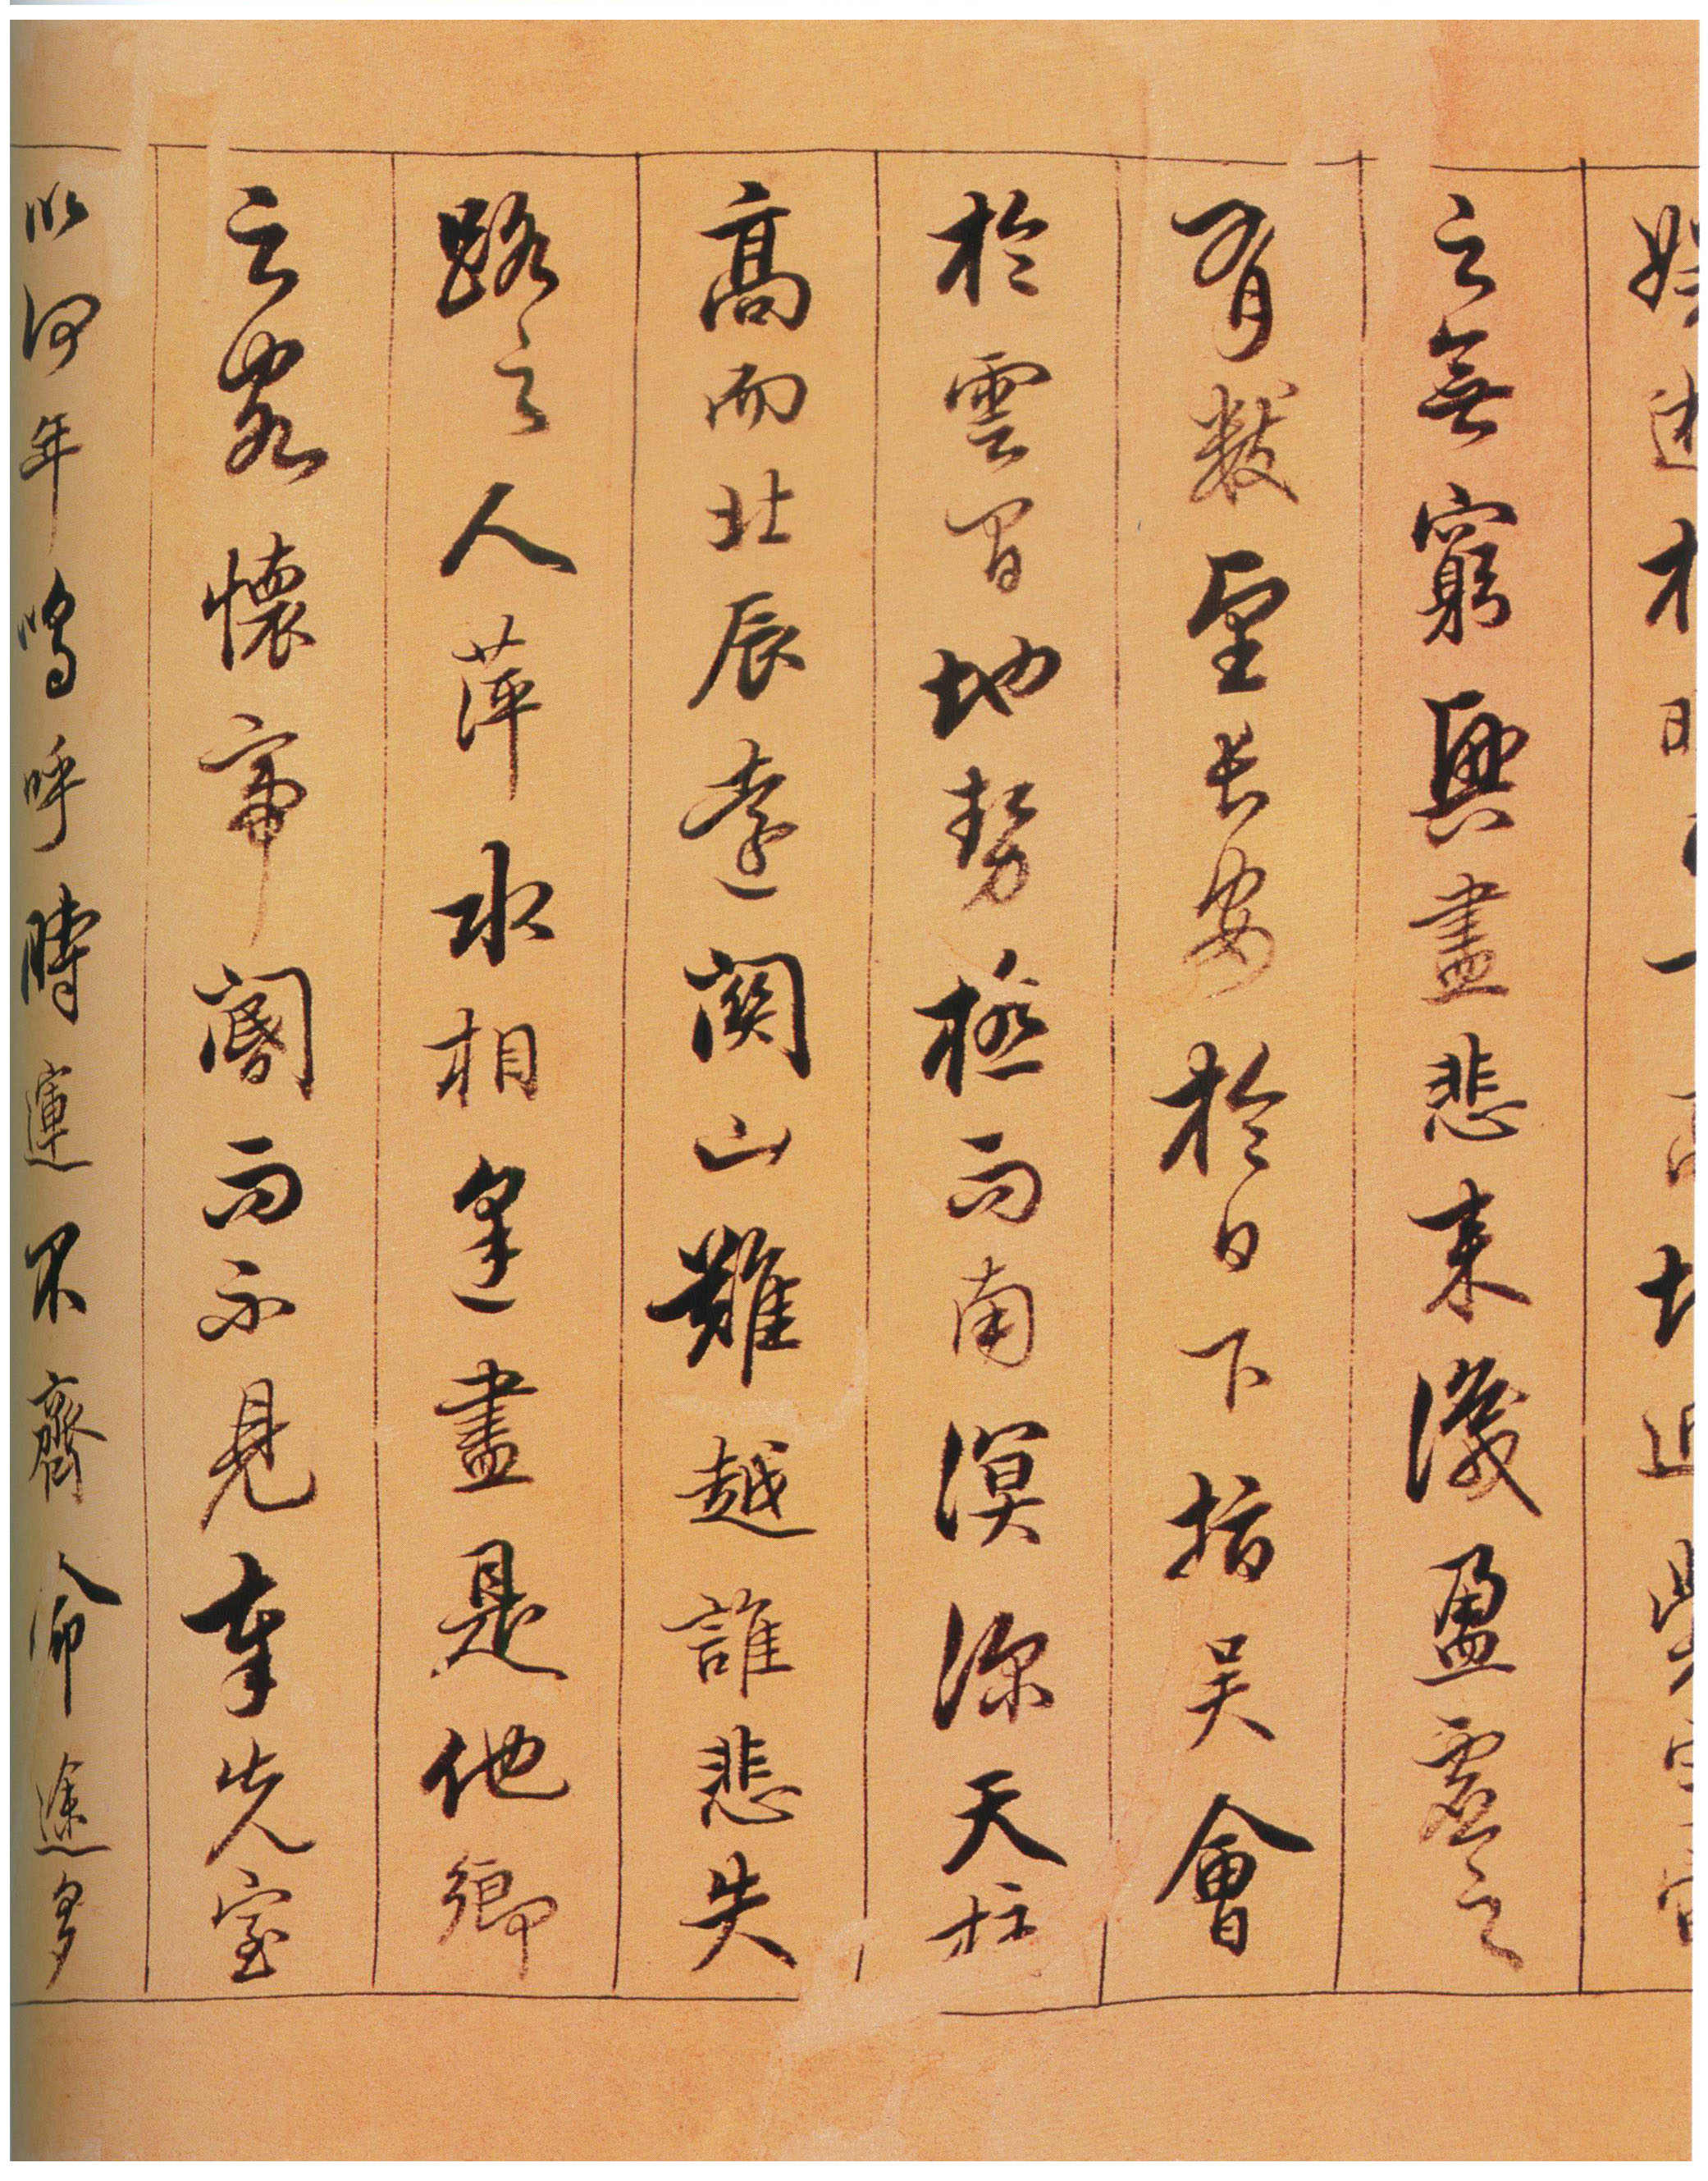 娛遊於暇日天高地迥覺宇宙
之無窮興盡悲來識盈虛之
有數望長安於日下指吳會
於雲間地勢極而南溟深天柱
高而北辰遠關山難越誰悲失
路之人萍水相逢盡是他鄉
之客懷帝閽而不見奉先室
以何年嗚呼時運不齊命途多